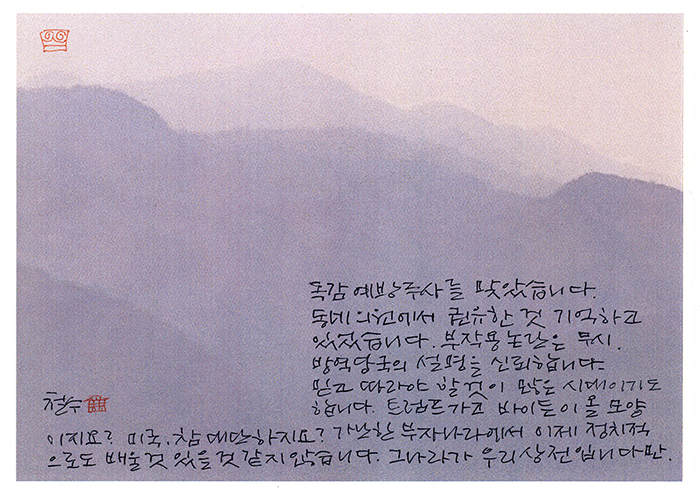 독감 예방주사를 맞았습니다.
동네의원에서 권유한 것 기억하고
있었습니다. 부작용논란은 무시.
방역당국의 설명을 신뢰합니다.
믿고 따라야 할것이 많은 시대이기도
합니다. 트럼프가고 바이든이 올 모양
이지요? 미국, 참 대단하지요? 가난한 부자나라에서 이제 정치적
으로도 배울것 있을것 같지않습니다. 그나라가 우리상전입니다만.
철수